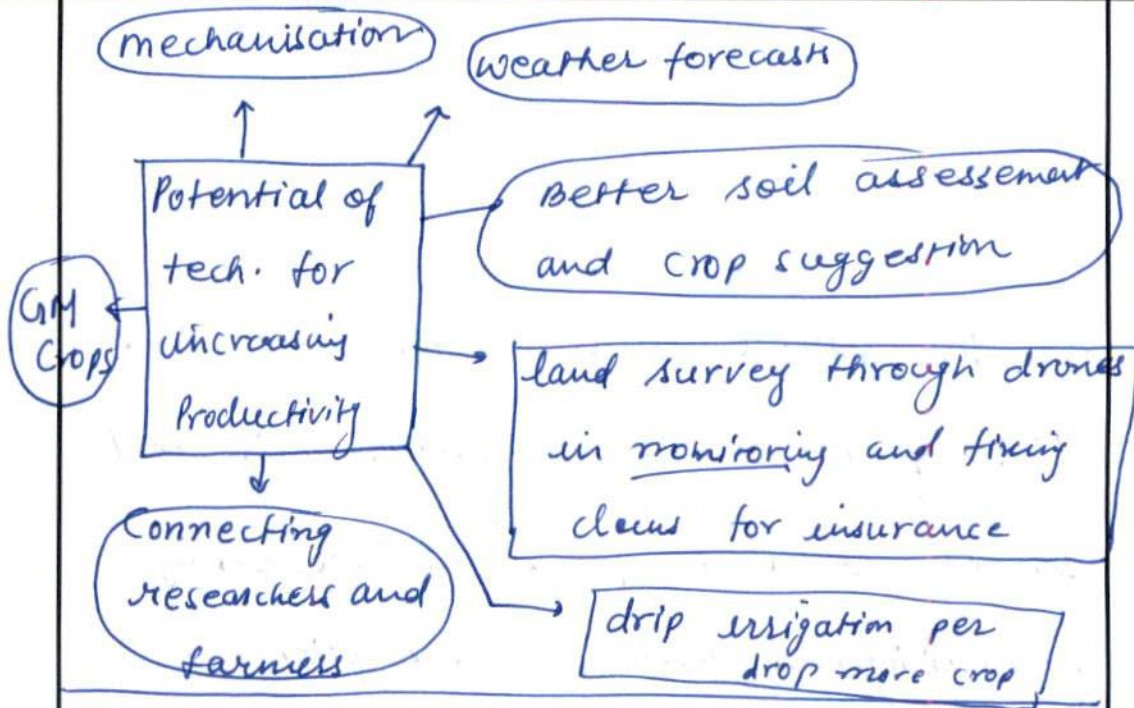 mechanisation
weather forecasts
Potential of
tech. for
increasing
Productivity
Better soil assessement
and crop suggestion
GM
Crops
land survey through drones
in monitoring and fixing
claims for insurance
Connecting
researchers and
farmers
drip irrigation per
drop more crop